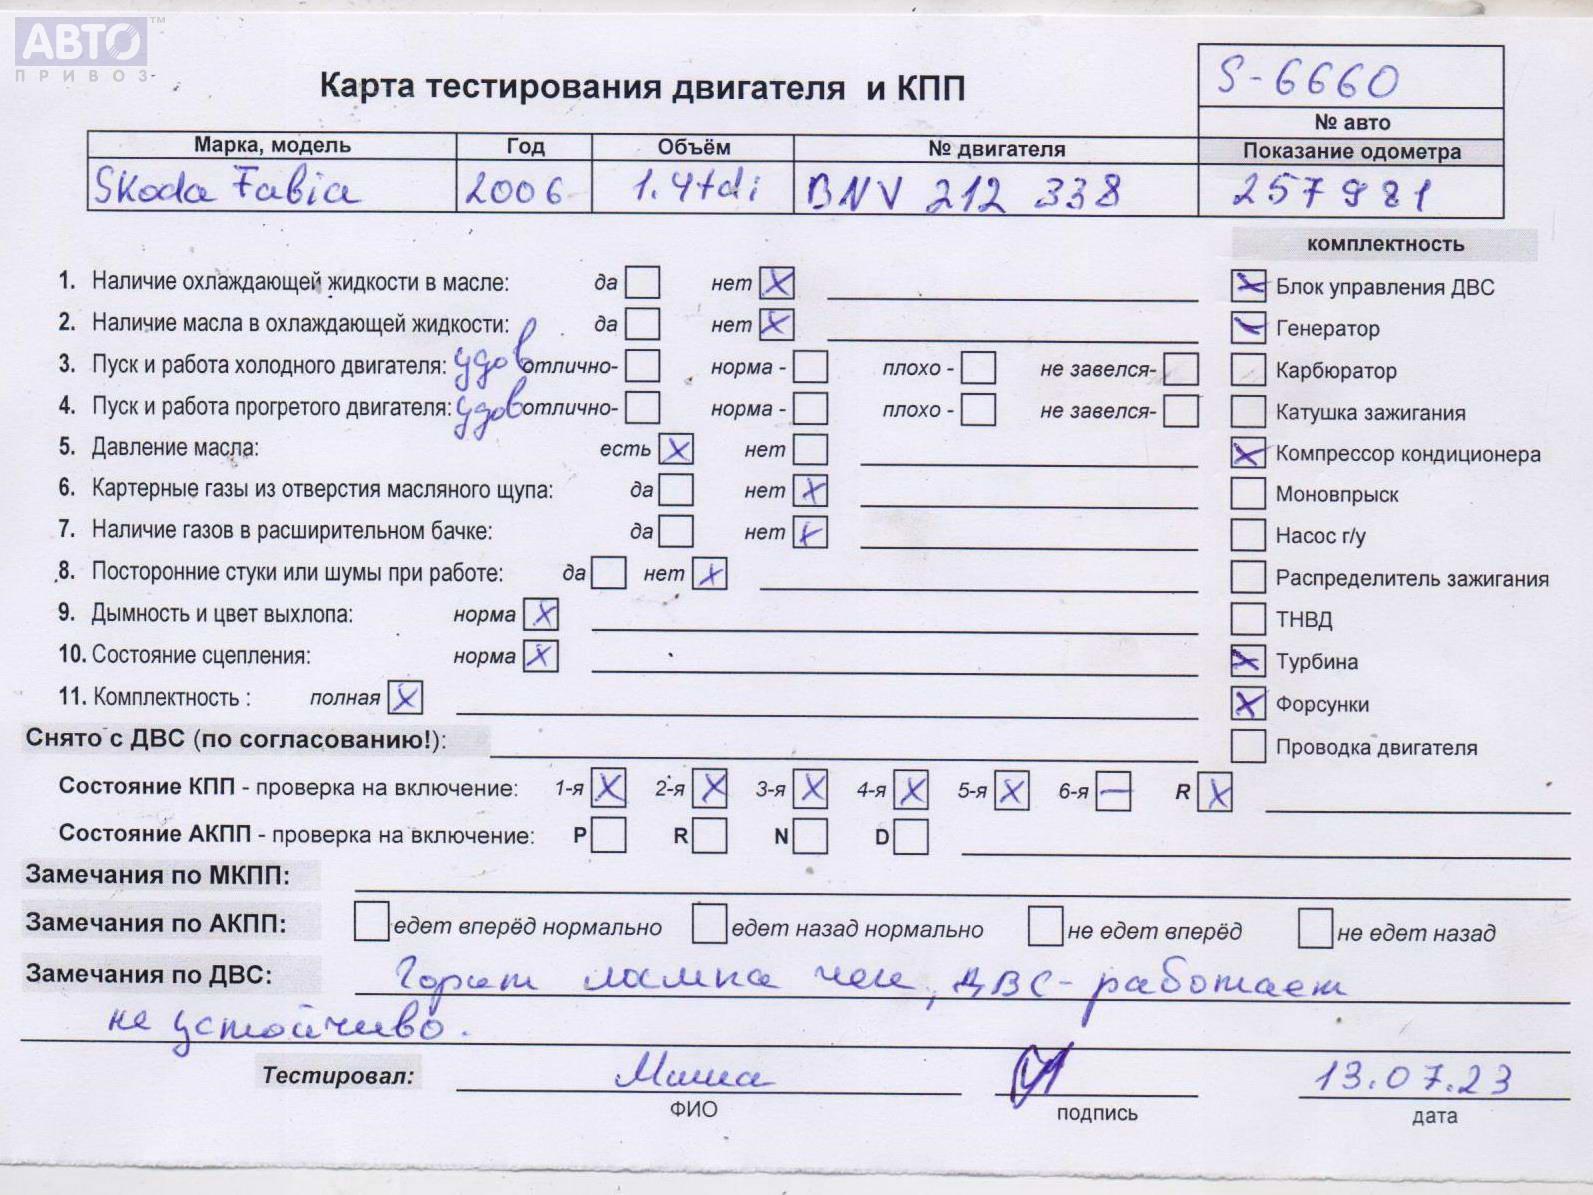 АВТО™
ПРИВОЗ
S-6660
Карта тестирования двигателя и КПП
№ авто
Марка, модель Год Объём № двигателя Показание одометра
Skoda Fabia 2006 1.4tdi BNV 212 338 257981
комплектность
1. Наличие охлаждающей жидкости в масле: да нет X
Блок управления ДВС
2. Наличие масла в охлаждающей жидкости: да нет X
Генератор
3. Пуск и работа холодного двигателя: удов отлично- норма - плохо - не завелся-
Карбюратор
4. Пуск и работа прогретого двигателя: удов отлично- норма - плохо - не завелся-
Катушка зажигания
5. Давление масла: есть X нет
Компрессор кондиционера
6. Картерные газы из отверстия масляного щупа: да нет X
Моновпрыск
7. Наличие газов в расширительном бачке: да нет X
Насос г/у
8. Посторонние стуки или шумы при работе: да нет X
Распределитель зажигания
9. Дымность и цвет выхлопа: норма X
ТНВД
10. Состояние сцепления: норма X
Турбина
11. Комплектность : полная X
Форсунки
Снято с ДВС (по согласованию!):
Проводка двигателя
Состояние КПП - проверка на включение: 1-я X 2-я X 3-я X 4-я X 5-я X 6-я — R X
Состояние АКПП - проверка на включение: P R N D
Замечания по МКПП:
Замечания по АКПП: едет вперёд нормально едет назад нормально не едет вперёд не едет назад
Замечания по ДВС: Горит лампа чек, ДВС - работает
не устойчиво.
Тестировал: Миша 13.07.23
ФИО подпись дата